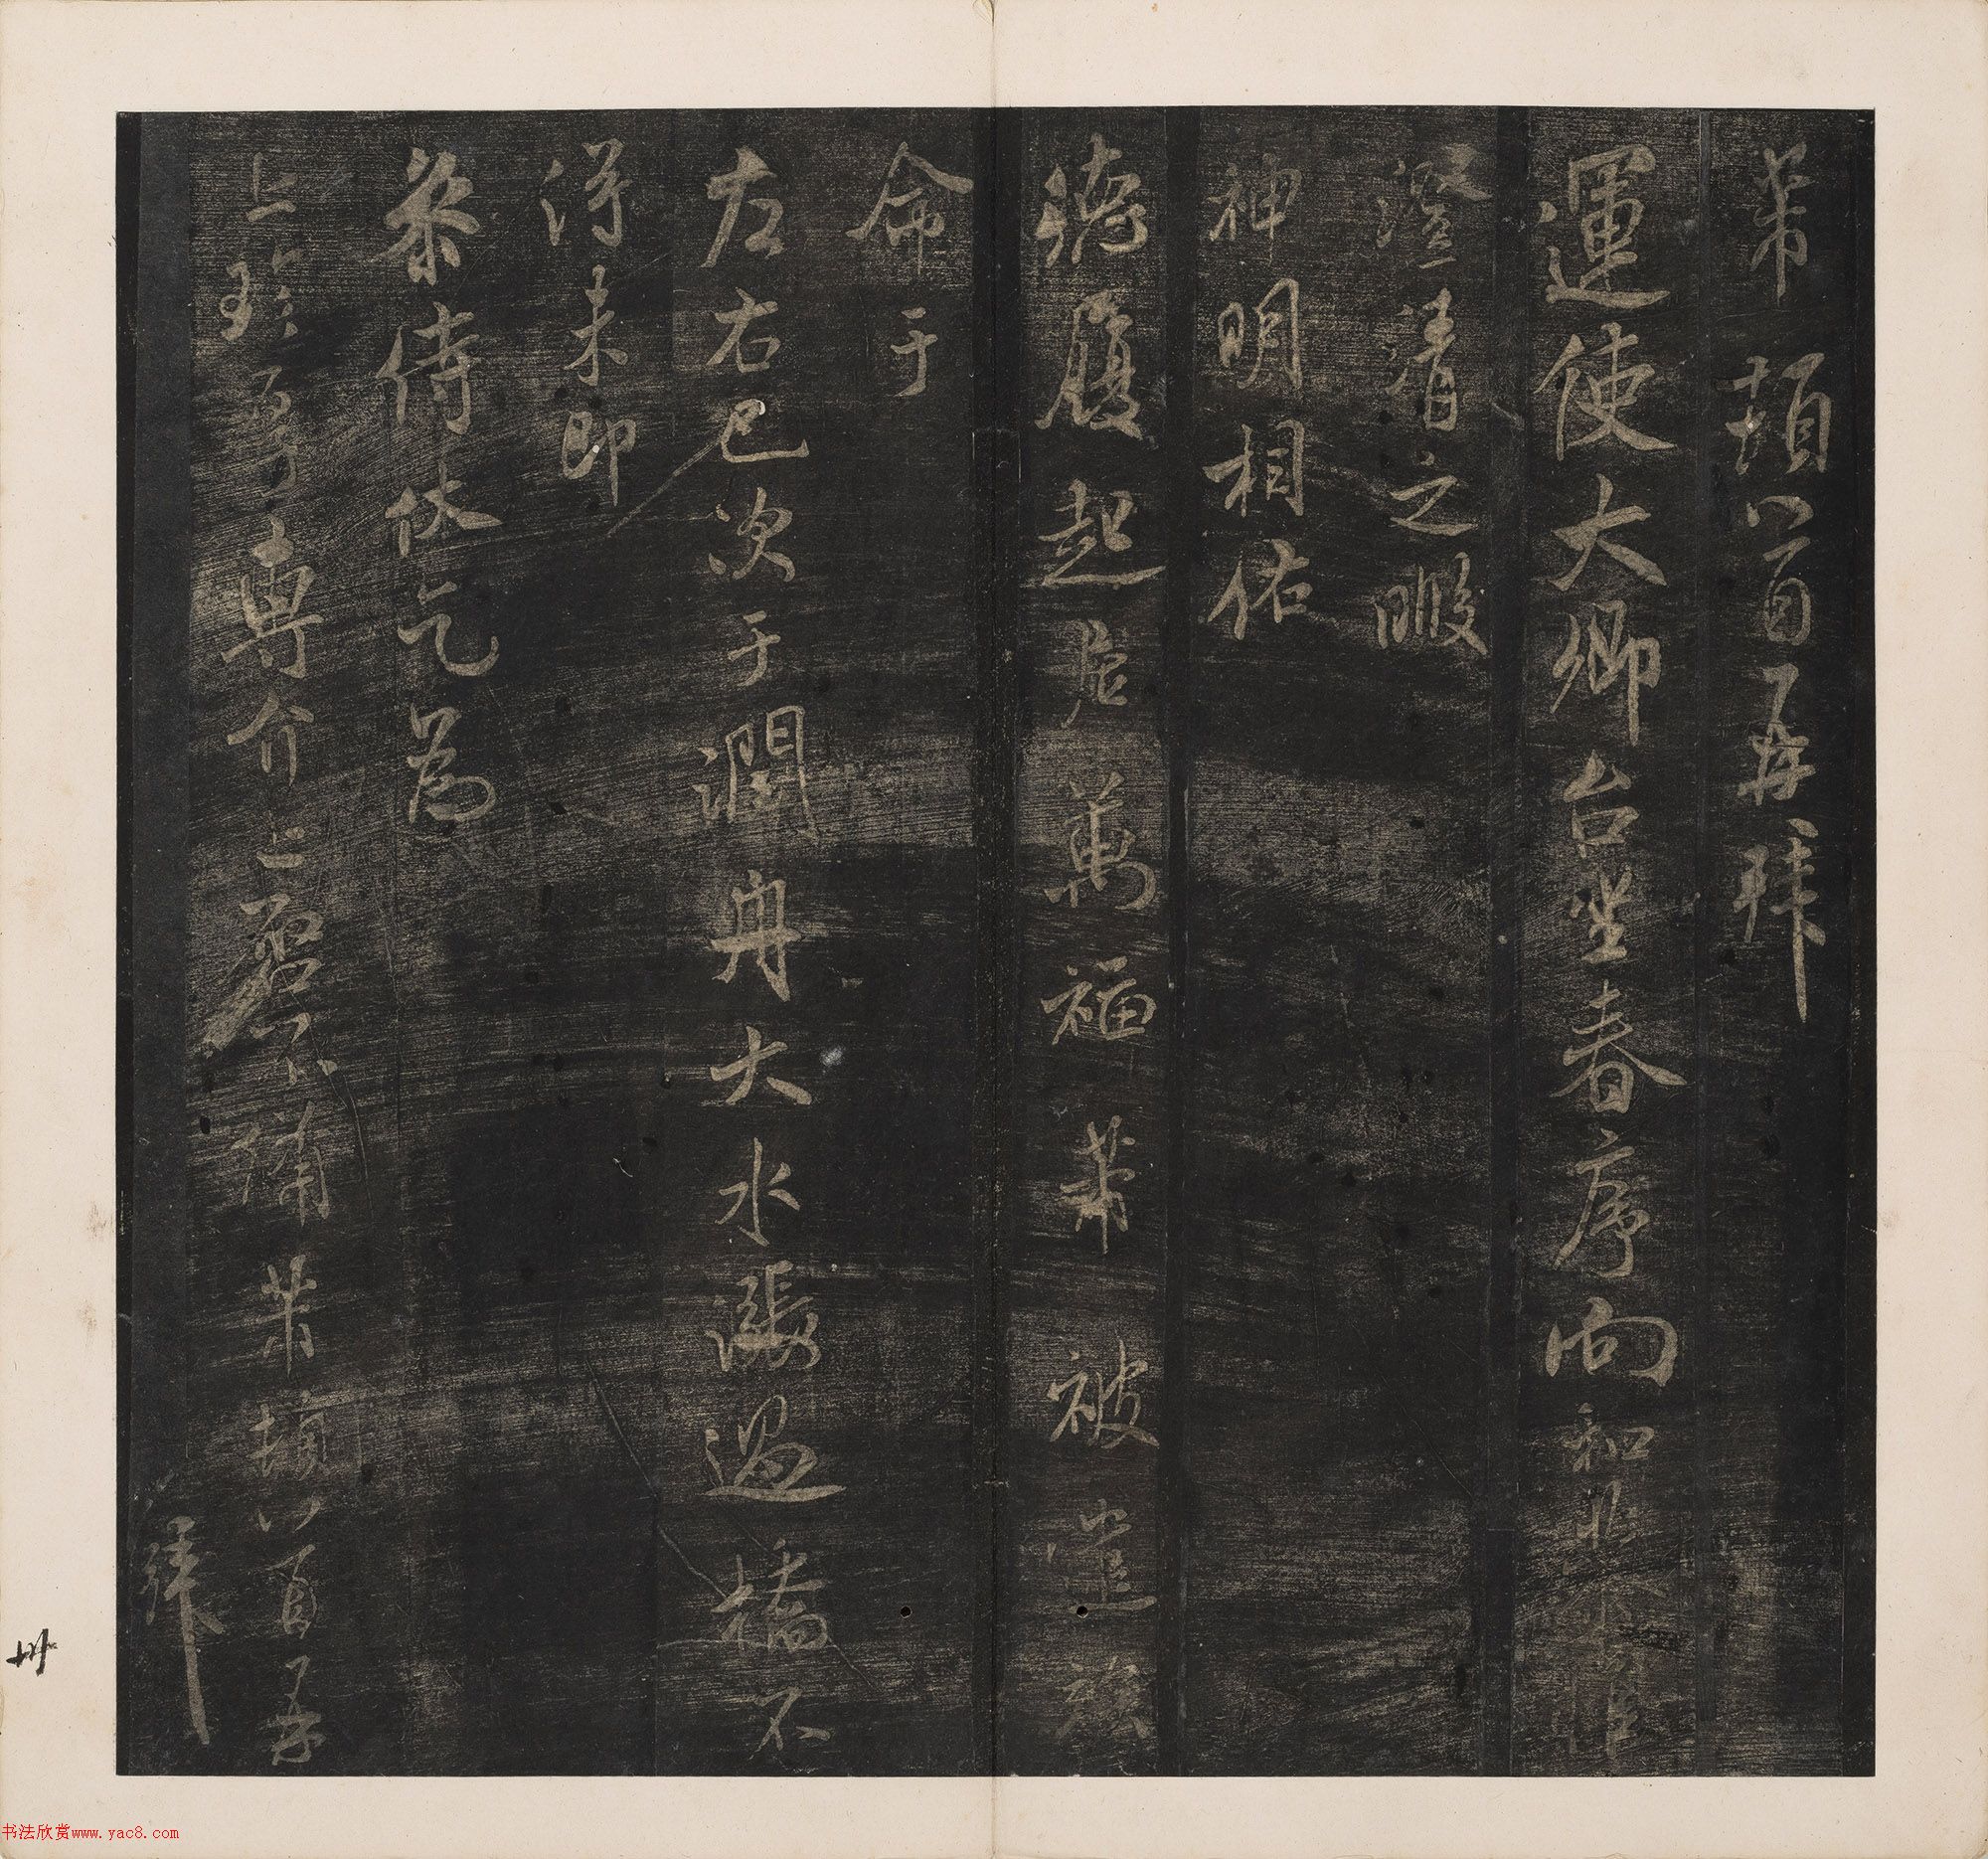 芾頓首再拜
運使大卿台坐春序向和恭惟
澄清之暇
神明相佑
德履起居萬福芾被
命于
左右已次于潤舟大水漲過橋不
得未即
參侍伏乞為
上珍尋專介上啓不備芾頓首再
拜
卅
书法欣赏www.yac8.com